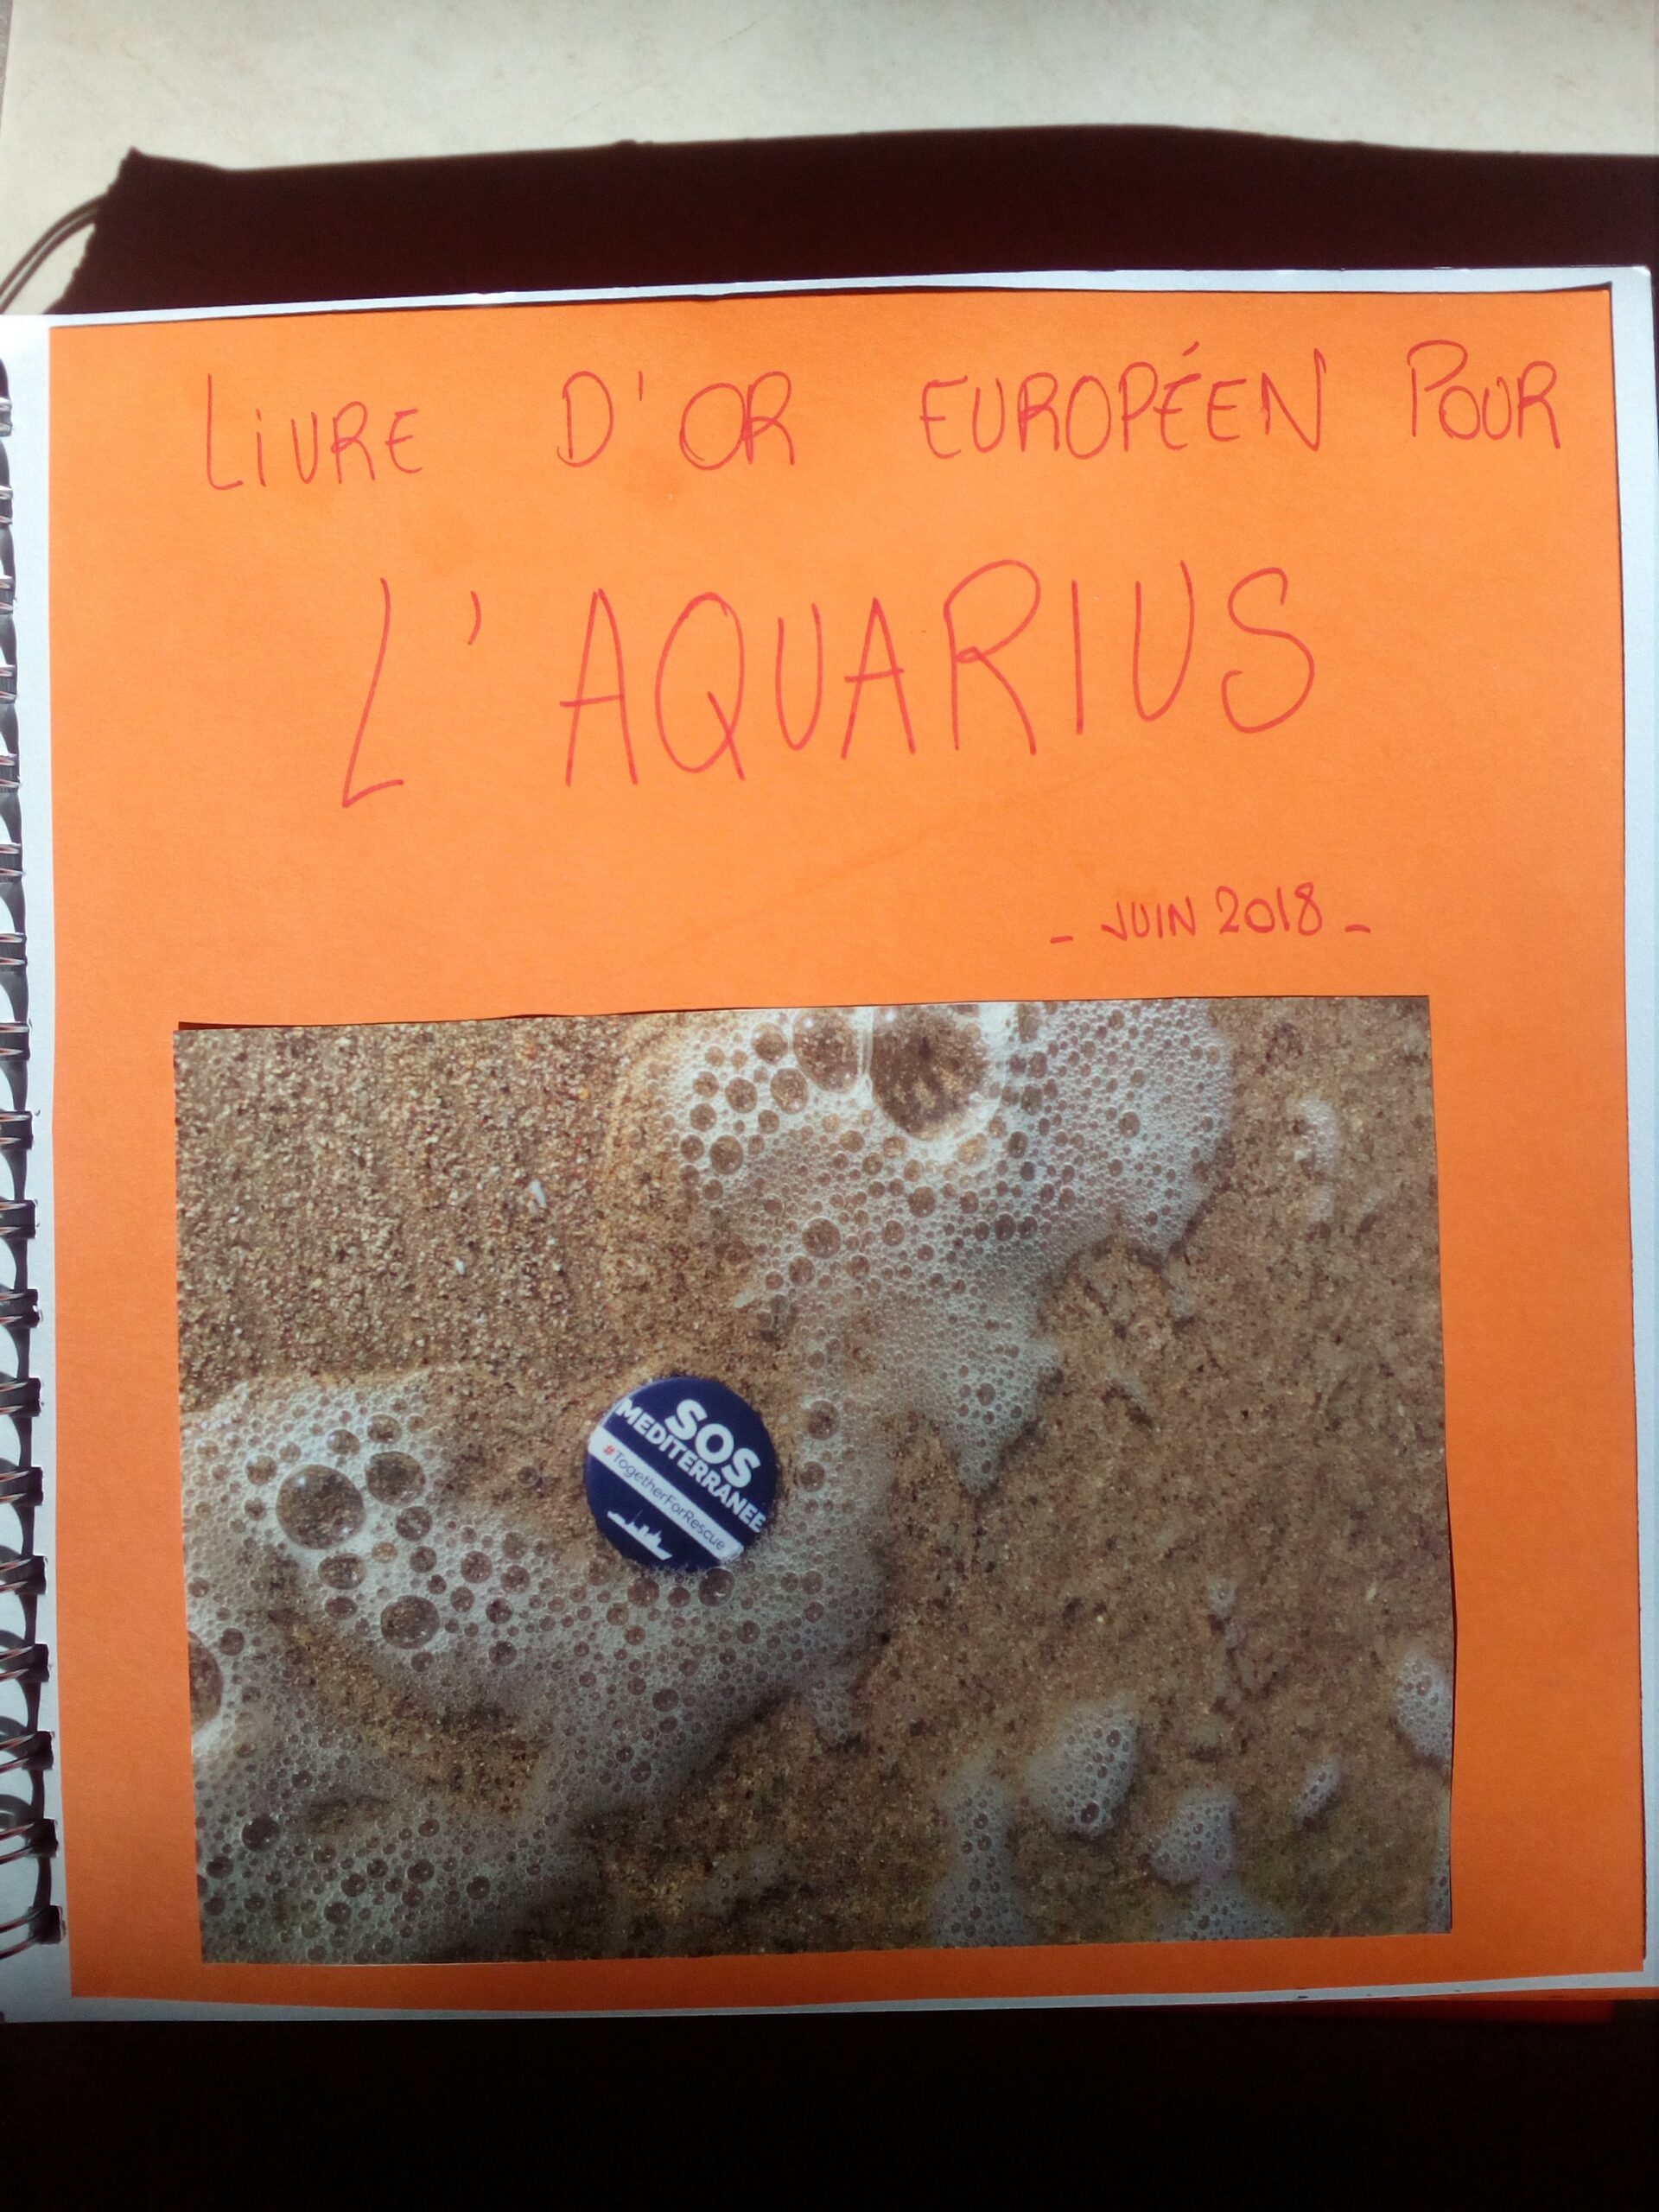 LiVRE D'OR EUROPÉEN POUR
L'AQUARIUS
- JUIN 2018 -
SOS
MEDITERRANEE
#TogetherForRescue